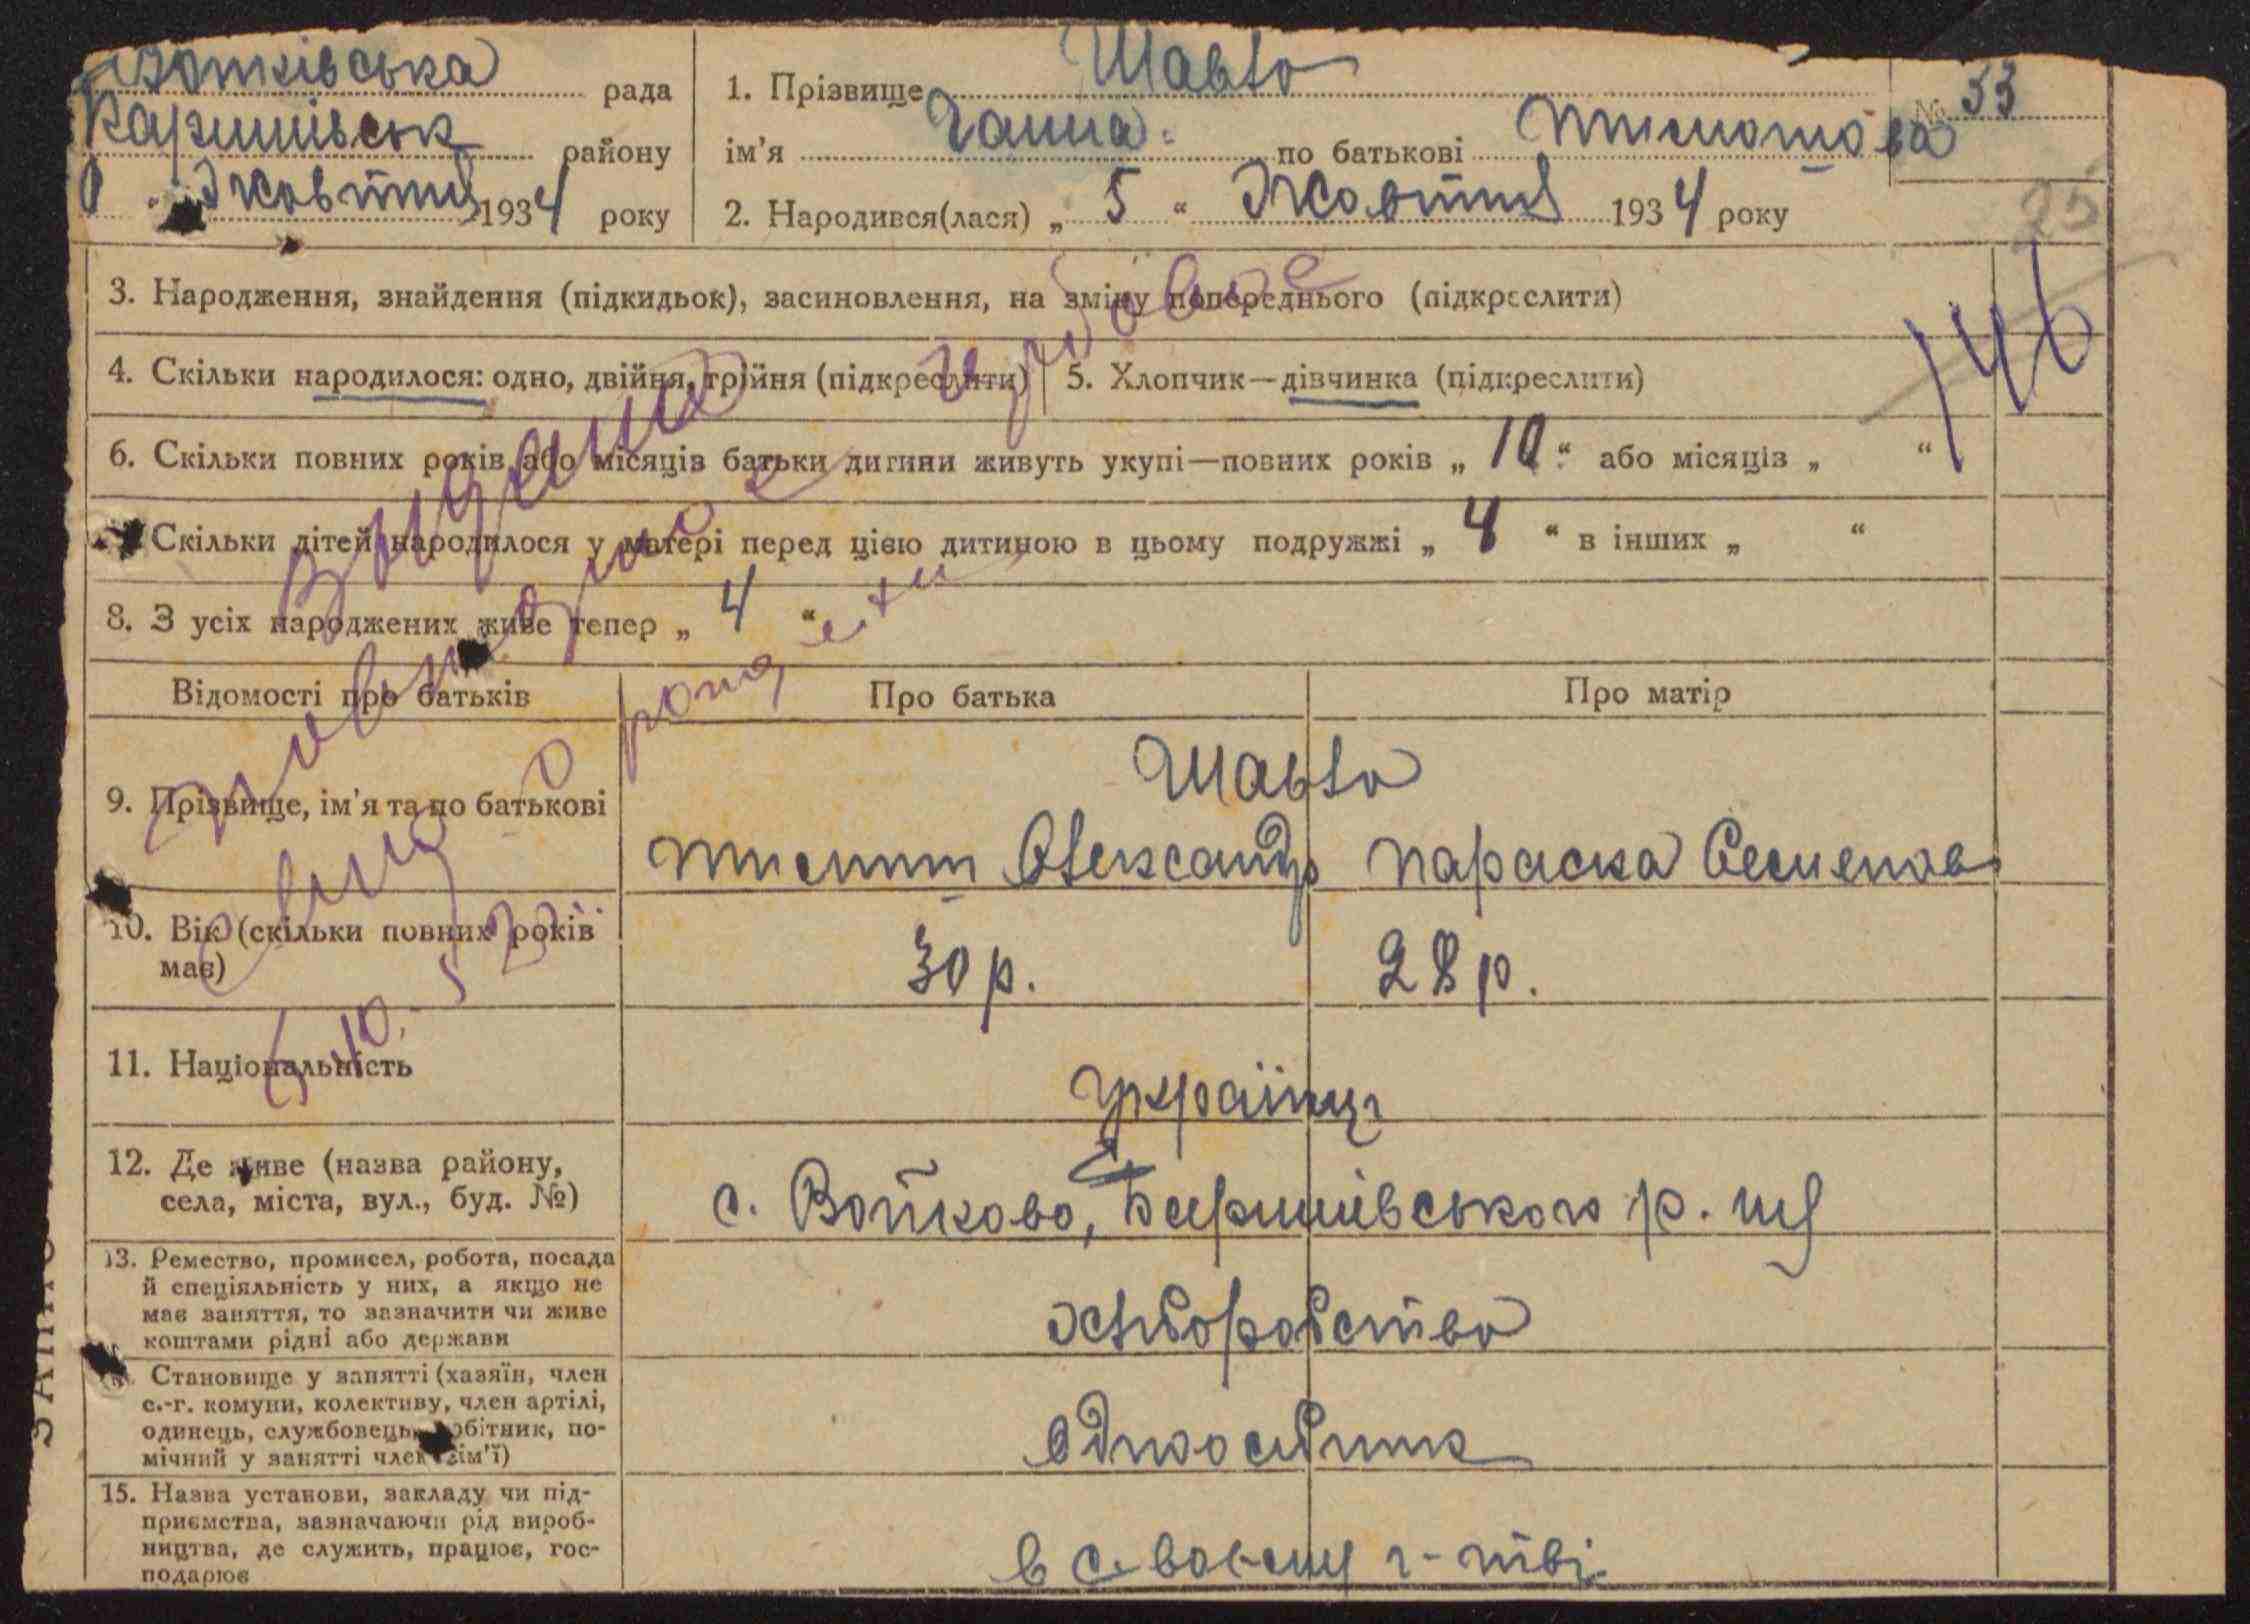 Войтківська рада
Каришківськ району
Жовтня 1934 року
1. Прізвище Шавло
№ 33
ім'я Ганна по батькові Тимотова
2. Народився(лася) „ 5 “ Жовтня 1934 року
25
3. Народження, знайдення (підкидьок), засиновлення, на зміну попереднього (підкреслити)
146
4. Скільки народилося: одно, двійня, трійня (підкреслити)
5. Хлопчик—дівчинка (підкреслити)
6. Скільки повних років або місяців батьки дитини живуть укупі—повних років „ 10 “ або місяців „ “
Скільки дітей народилося у матері перед цією дитиною в цьому подружжі „ 4 “ в інших „ “
8. З усіх народжених живе тепер „ 4 “
Відомості про батьків
Про батька
Про матір
9. Прізвище, ім'я та по батькові
Шавло
Олександр
Параска Семенов
10. Вік (скільки повних років має)
30 р.
28 р.
11. Національність
Українці
12. Де живе (назва району,
села, міста, вул., буд. №)
с. Войтково,
13. Ремество, промисел, робота, посада
й спеціяльність у них, а якщо не
має заняття, то зазначити чи живе
коштами рідні або держави
хліборобство
Становище у занятті (хазяїн, член
с.-г. комуни, колективу, член артілі,
одинець, службовець, робітник, по-
мічний у занятті член сім'ї)
Одноосібник
15. Назва установи, закладу чи під-
приємства, зазначаючи рід вироб-
ництва, де служить, працює, гос-
подарює
в г-тві